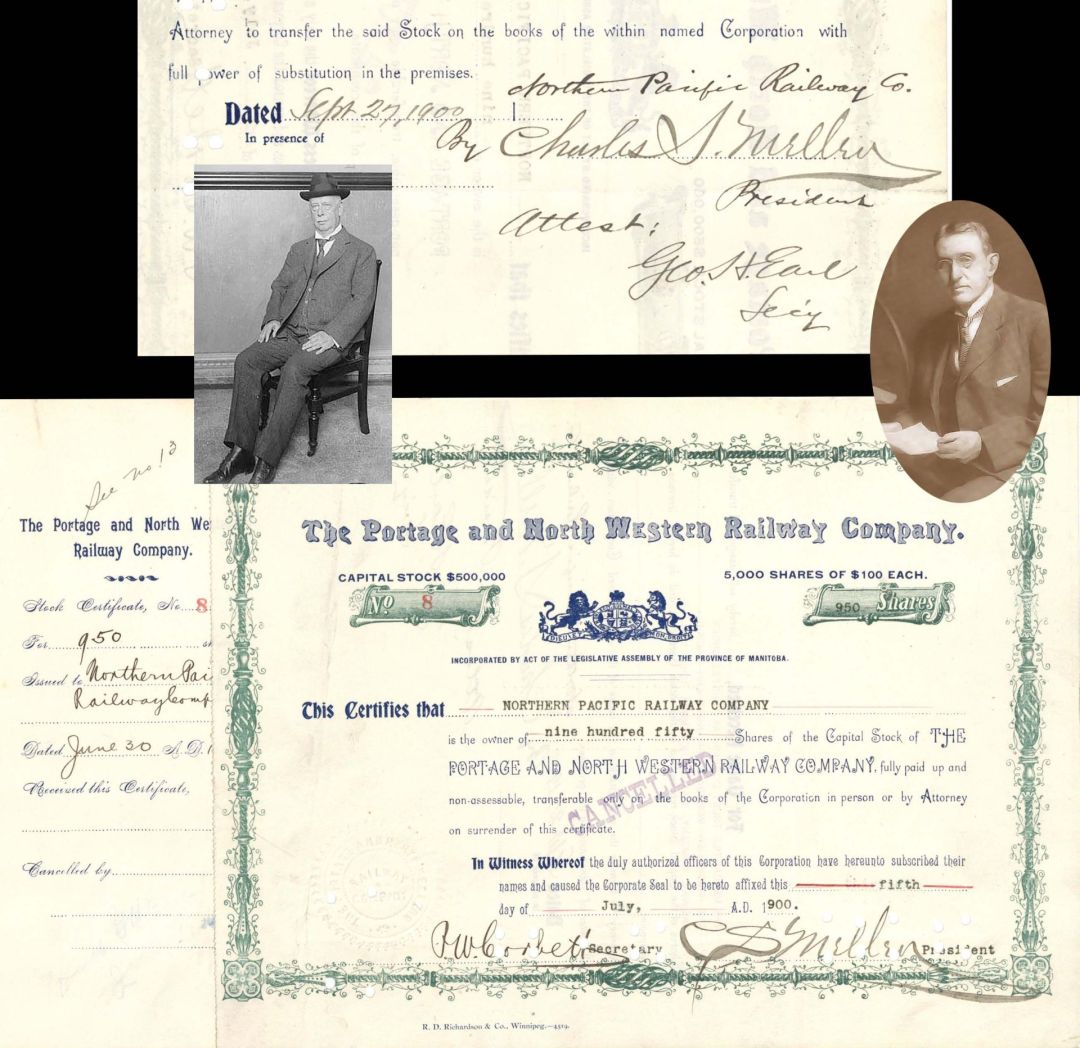 Attorney to transfer the said Stock on the books of the within named Corporation with
full power of substitution in the premises.
Dated Sept 27, 1900
In presence of
Northern Pacific Railway Co.
By Charles S. Mellen
President
Attest:
Geo. H. Earl
Sec'y
See no. 13
The Portage and North We
Railway Company.
Stock Certificate, No. 8
For 950
Issued to Northern Pai
Railway Comp
Dated June 30 A.D. 1
Received this Certificate,
Cancelled by
The Portage and North Western Railway Company.
CAPITAL STOCK $500,000
5,000 SHARES OF $100 EACH.
No 8
950 Shares
INCORPORATED BY ACT OF THE LEGISLATIVE ASSEMBLY OF THE PROVINCE OF MANITOBA.
This Certifies that NORTHERN PACIFIC RAILWAY COMPANY
is the owner of nine hundred fifty Shares of the Capital Stock of THE
PORTAGE AND NORTH WESTERN RAILWAY COMPANY, fully paid up and
non-assessable, transferable only on the books of the Corporation in person or by Attorney
on surrender of this certificate.
CANCELLED
In Witness Whereof the duly authorized officers of this Corporation have hereunto subscribed their
names and caused the Corporate Seal to be hereto affixed this fifth
day of July, A.D. 1900.
Secretary C S Mellen President
R. D. Richardson & Co., Winnipeg.—4519.